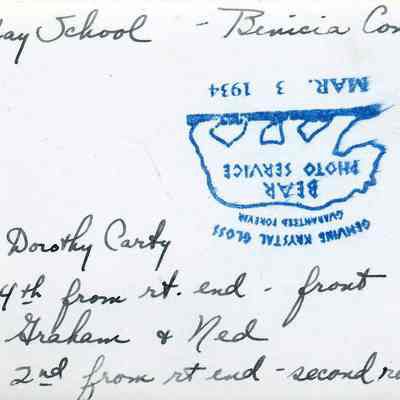 ay School - Benicia Con
MAR. 3 1934
BEAR
PHOTO SERVICE
GENUINE KRYSTAL GLOSS
GUARANTEED FOREVER
Dorothy Carty
4th from rt. end - front
Graham & Ned
2nd from rt end - second ro